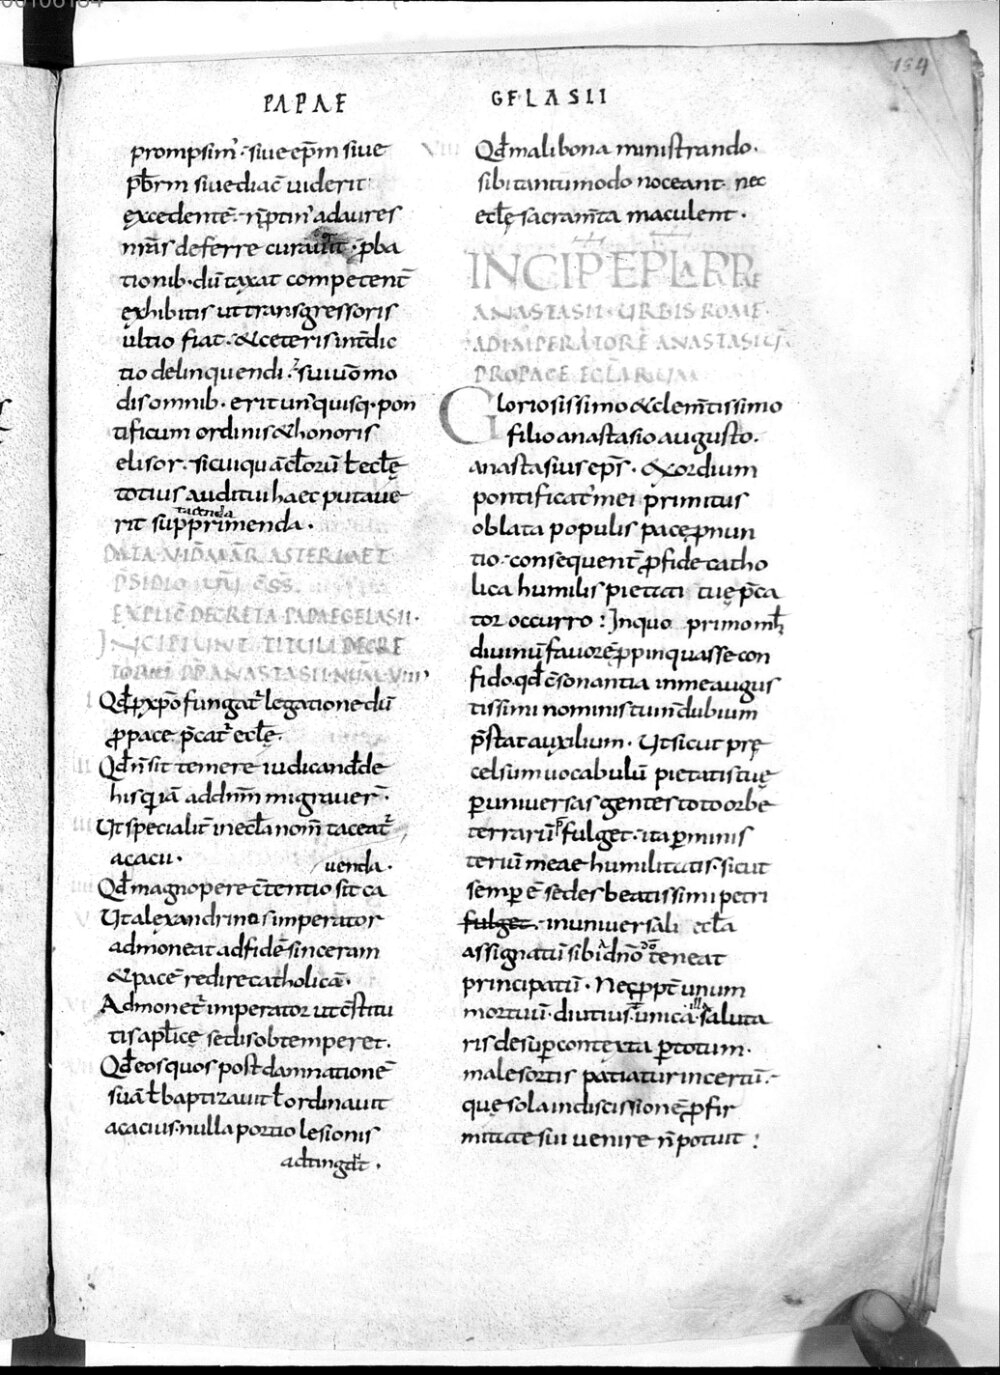 154
PAPAE GELASII
prompsim᾽. siue ep̄m siue
pb̄rm siue diac̄ uiderit
ęxcedentē. n̄ ptin᾽ ad aures
nr̄as deferre curauit. p̄ba
tionib· dū taxat competent̄
exhibitis ut transgressoris
ultio fiat. & ceteris int̄dic
tio delinquendi. suis mo
dis omnib· erit un᾽quisq· pon
tificum ordinis & honoris
elisor. si cuiquā cl̄orū ł eclę̄
totius auditui haec putaue
tacenda
rit supprimenda.
EXPLIC̄ DECRETA PAPAE GELASII.
INCIPIUNT TITULI DECRE
TORUM PP̄ ANASTASII NUM̄ VIIII
I Qd̄ p xp̄o fungat᾽ legatione dū
p pace p̄cat᾽ eclę̄.
Qd̄ n̄ sit temere iudicand̄ de
his q iā ad dn̄m migrauer̄.
Ut specialit̄ in ecl̄a nom̄ taceat᾽
acacii.
uenda.
Qd̄ magnopere c̄tentio sit ca
Ut alexandrinos imperator
admoneat ad fidē sinceram
& pacē redire catholicā.
Admonet᾽ imperator ut c̄stitu
tis apl̄icę sedis obtemperet.
Qd̄ eos quos post damnationē
suā ł baptizauit ł ordinauit
acacius. nulla portio lesionis
adtingat̄.
VIII Qd̄ mali bona ministrando.
sibi tantūmodo noceant. nec
eclę̄ sacram̄ta maculent.
INCIP EPL̄A PP̄AE
ANASTASII. URBIS ROMĘ.
AD IMPERATORĒ ANASTASIŪ
PRO PACE ECL̄ARUM
Gloriosissimo & clem̄tissimo
filio anastasio augusto.
anastasius ep̄s. Exordium
pontificat᾽ mei primitus
oblata populis pacę p nun
tio. consequent̄ p fide catho
lica humilis pietati tuę p̄ca
tor occurro: In quo primo mł
diuinū fauorē p pinquasse con
fido. qd̄ c̄sonantia in me augus
tissimi nominis tui n̄ dubium
p̄stat auxilium. Ut sicut prę
celsum uocabulū pietatis tuę
p uniuersas gentes toto orbe
terrarū p̄fulget. ita p minis
teriū meae humilitatis. sicut
semp ē sedes beatissimi petri
fulget. in uniuersali ecl̄a
assignatū sibi a dn̄o dō teneat
principatū. Nec pp̄t unum
mortuū. diutius. unica illa saluta
ris desup contexta p totum.
male sortis patiatur incertū.
que sola in discissionē p fir
mitate sui uenire n̄ potuit: